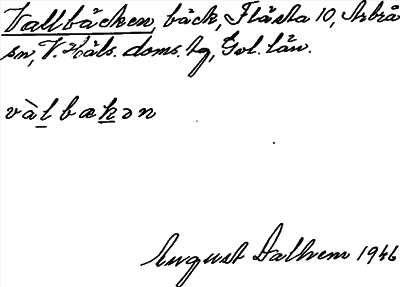 Vallbäcken, bäck, Flästa 10, Arbrå
sn, V. Häls. doms. hg, Gvl. län.
vàlbækən
August Dalhem 1946